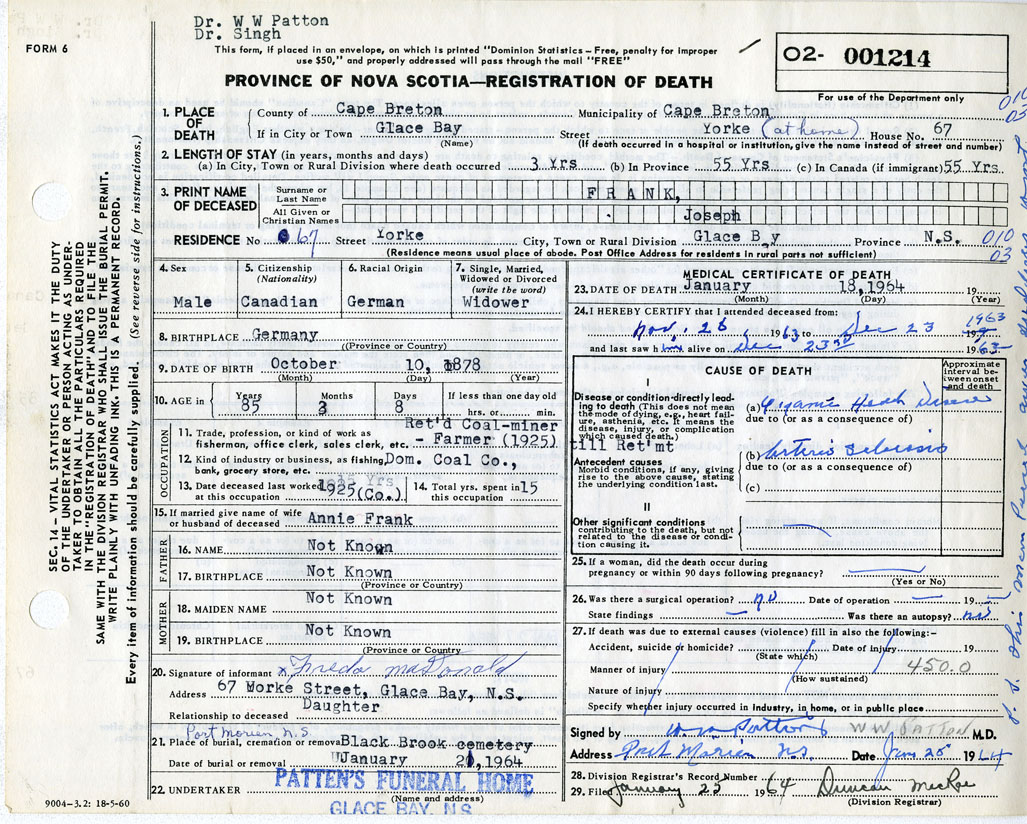 Dr. W W Patton
Dr. Singh
FORM 6
This form, if placed in an envelope, on which is printed "Dominion Statistics – Free, penalty for improper
use $50," and properly addressed will pass through the mail "FREE"
02- 001214
For use of the Department only
PROVINCE OF NOVA SCOTIA—REGISTRATION OF DEATH
1. PLACE OF DEATH County of Cape Breton Municipality of Cape Breton
If in City or Town Glace Bay Street Yorke (at home) House No. 67
(Name) (If death occurred in a hospital or institution, give the name instead of street and number)
2. LENGTH OF STAY (in years, months and days)
(a) In City, Town or Rural Division where death occurred 3 Yrs (b) In Province 55 Yrs (c) In Canada (if immigrant) 55 Yrs
3. PRINT NAME OF DECEASED Surname or Last Name FRANK,
All Given or Christian Names Joseph
RESIDENCE No 67 Street Yorke City, Town or Rural Division Glace B.y Province N.S. 010 03
(Residence means usual place of abode. Post Office Address for residents in rural parts not sufficient)
4. Sex Male
5. Citizenship (Nationality) Canadian
6. Racial Origin German
7. Single, Married, Widowed or Divorced (write the word) Widower
8. BIRTHPLACE Germany
(Province or Country)
9. DATE OF BIRTH October 10, 1878
(Month) (Day) (Year)
10. AGE in Years 85 Months 3 Days 8 If less than one day old hrs. or min.
OCCUPATION
11. Trade, profession or kind of work as fisherman, office clerk, sales clerk, etc. Ret'd Coal-miner - Farmer (1925) till Ret'mt
12. Kind of industry or business, as fishing, bank, grocery store, etc. Dom. Coal Co.,
13. Date deceased last worked at this occupation 1925 (Co.) 14. Total yrs. spent in this occupation 15
15. If married give name of wife or husband of deceased Annie Frank
FATHER
16. NAME Not Known
17. BIRTHPLACE Not Known
(Province or Country)
MOTHER
18. MAIDEN NAME Not Known
19. BIRTHPLACE Not Known
(Province or Country)
20. Signature of informant x Freda MacDonald
Address 67 Yorke Street, Glace Bay, N.S.
Relationship to deceased Daughter
Port Morien, N.S.
21. Place of burial, cremation or removal Black Brook cemetery
Date of burial or removal January 21, 1964
22. UNDERTAKER PATTEN'S FUNERAL HOME
(Name and address)
GLACE BAY, N.S.
9004–3.2: 18-5-60
MEDICAL CERTIFICATE OF DEATH
23. DATE OF DEATH January 18, 1964 19
(Month) (Day) (Year)
24. I HEREBY CERTIFY that I attended deceased from:
Nov. 26 1963 to Dec 23 1963
and last saw him alive on Dec 23rd 1963
CAUSE OF DEATH
Approximate interval between onset and death
I
Disease or condition directly leading to death (This does not mean the mode of dying, e.g., heart failure, asthenia, etc. It means the disease, injury, or complication which caused death.)
(a) Heart Disease
due to (or as a consequence of)
Antecedent causes
Morbid conditions, if any, giving rise to the above cause, stating the underlying condition last.
(b) Arterio Sclerosis
due to (or as a consequence of)
(c)
II
Other significant conditions
contributing to the death, but not related to the disease or condition causing it.
25. If a woman, did the death occur during
pregnancy or within 90 days following pregnancy?
(Yes or No)
26. Was there a surgical operation? no Date of operation 19
State findings Was there an autopsy? no
27. If death was due to external causes (violence) fill in also the following:–
Accident, suicide or homicide? Date of injury 19
(State which)
450.0
Manner of injury
(How sustained)
Nature of injury
Specify whether injury occurred in industry, in home, or in public place
Signed by W W Patton M.D.
W W PATTON
Address Port Morien N.S. Date Jan 25 1964
28. Division Registrar's Record Number
29. Filed January 25 1964 Duncan MacRae
(Division Registrar)
SEC. 14 – VITAL STATISTICS ACT MAKES IT THE DUTY
OF THE UNDERTAKER OR PERSON ACTING AS UNDER-
TAKER TO OBTAIN ALL THE PARTICULARS REQUIRED
IN THE "REGISTRATION OF DEATH" AND TO FILE THE
SAME WITH THE DIVISION REGISTRAR WHO SHALL ISSUE THE BURIAL PERMIT.
WRITE PLAINLY WITH UNFADING INK. THIS IS A PERMANENT RECORD.
Every item of information should be carefully supplied. (See reverse side for instructions.)